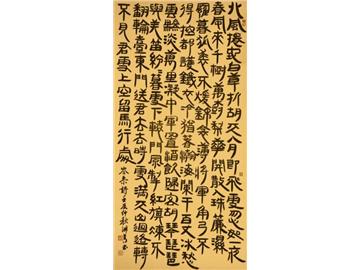 北風捲地白草折胡天八月即飛雪忽如一夜
春風來千樹萬樹梨華開散入珠簾濕
羅幕狐裘不煖錦衾薄將軍角弓不
得控都護鐵衣冷猶著瀚海闌干百丈冰愁
雲黲淡萬里凝中軍置酒飲歸客胡琴琵琶
與羌笛紛〻暮雪下轅門風掣紅旗凍不
翻輪臺東門送君去去時雪滿天山路山迴路轉
不見君雪上空留馬行處
岑參詩壬辰仲秋書